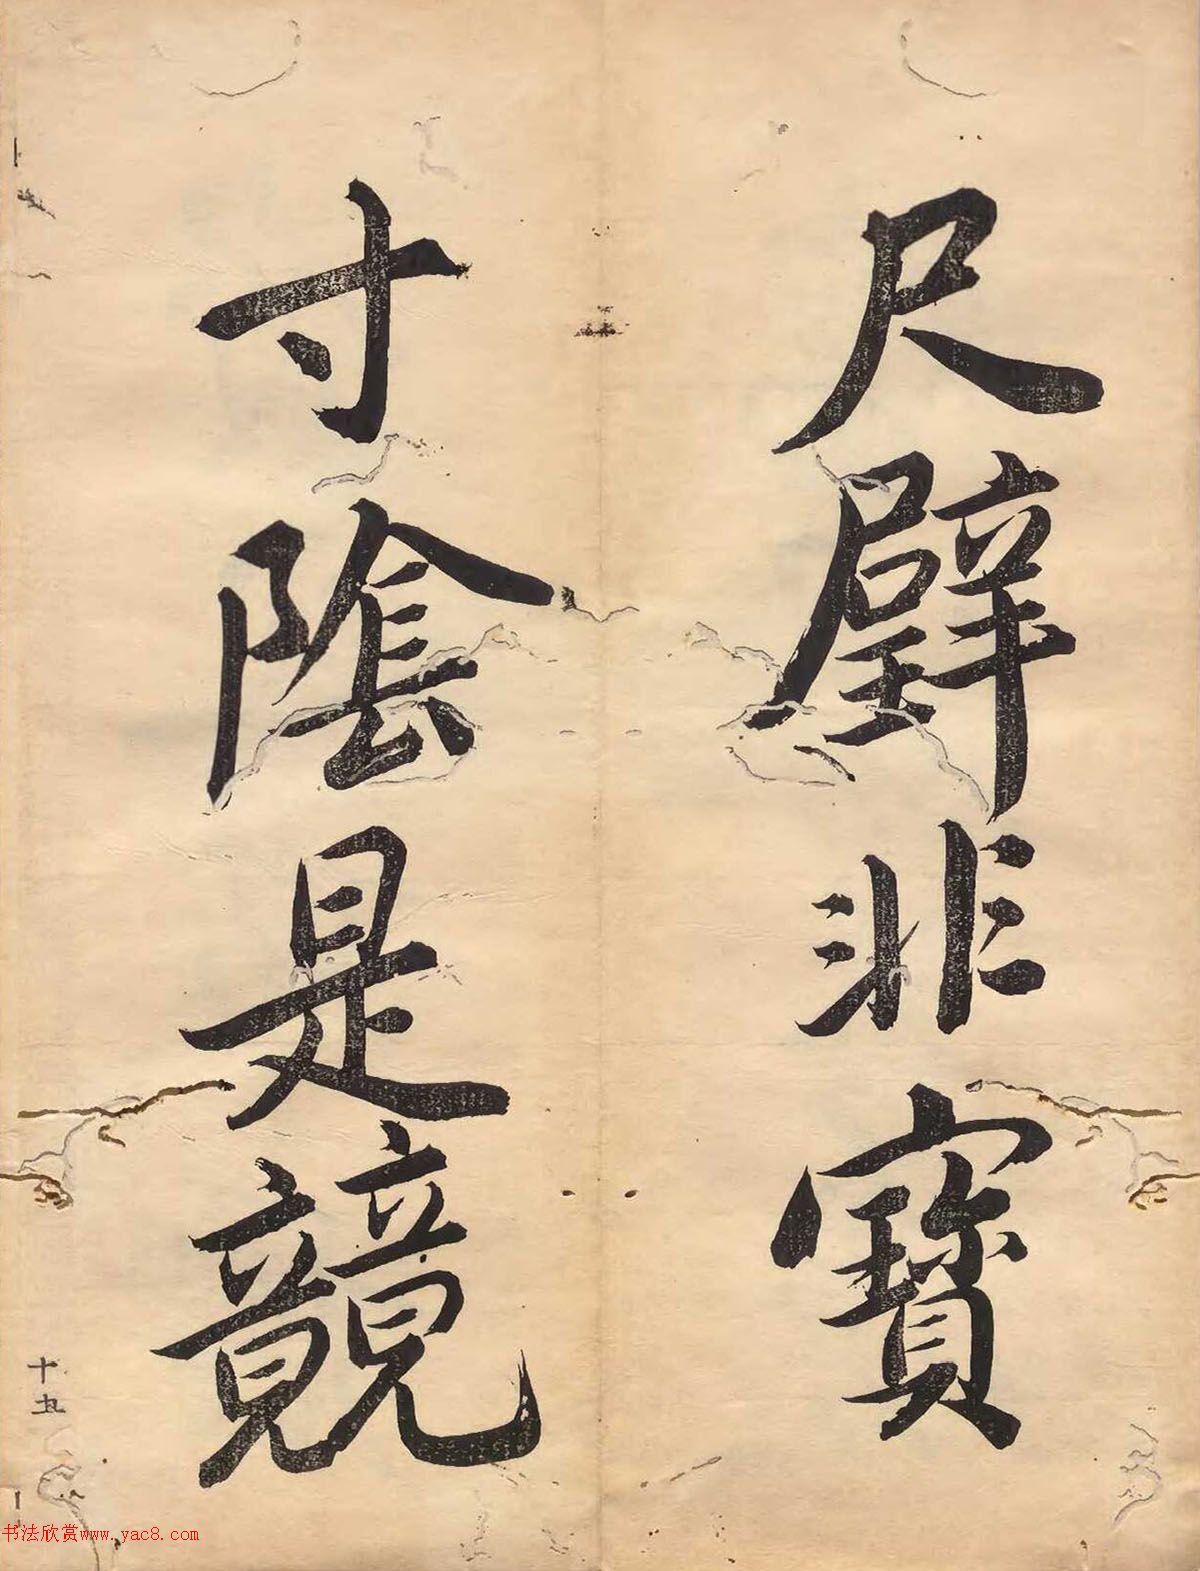 尺璧非寶
寸陰是競
十五
书法欣赏www.yac8.com